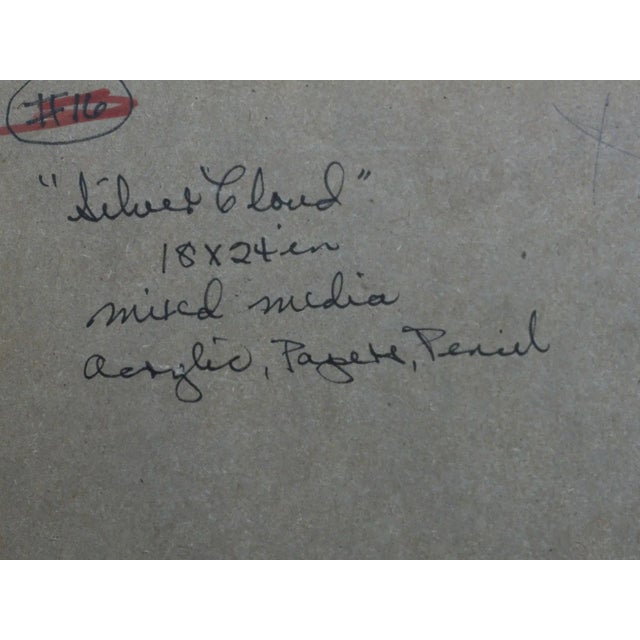 #16
"Silver Cloud"
18 x 24 in
mixed media
acrylic, Papers, Pencil